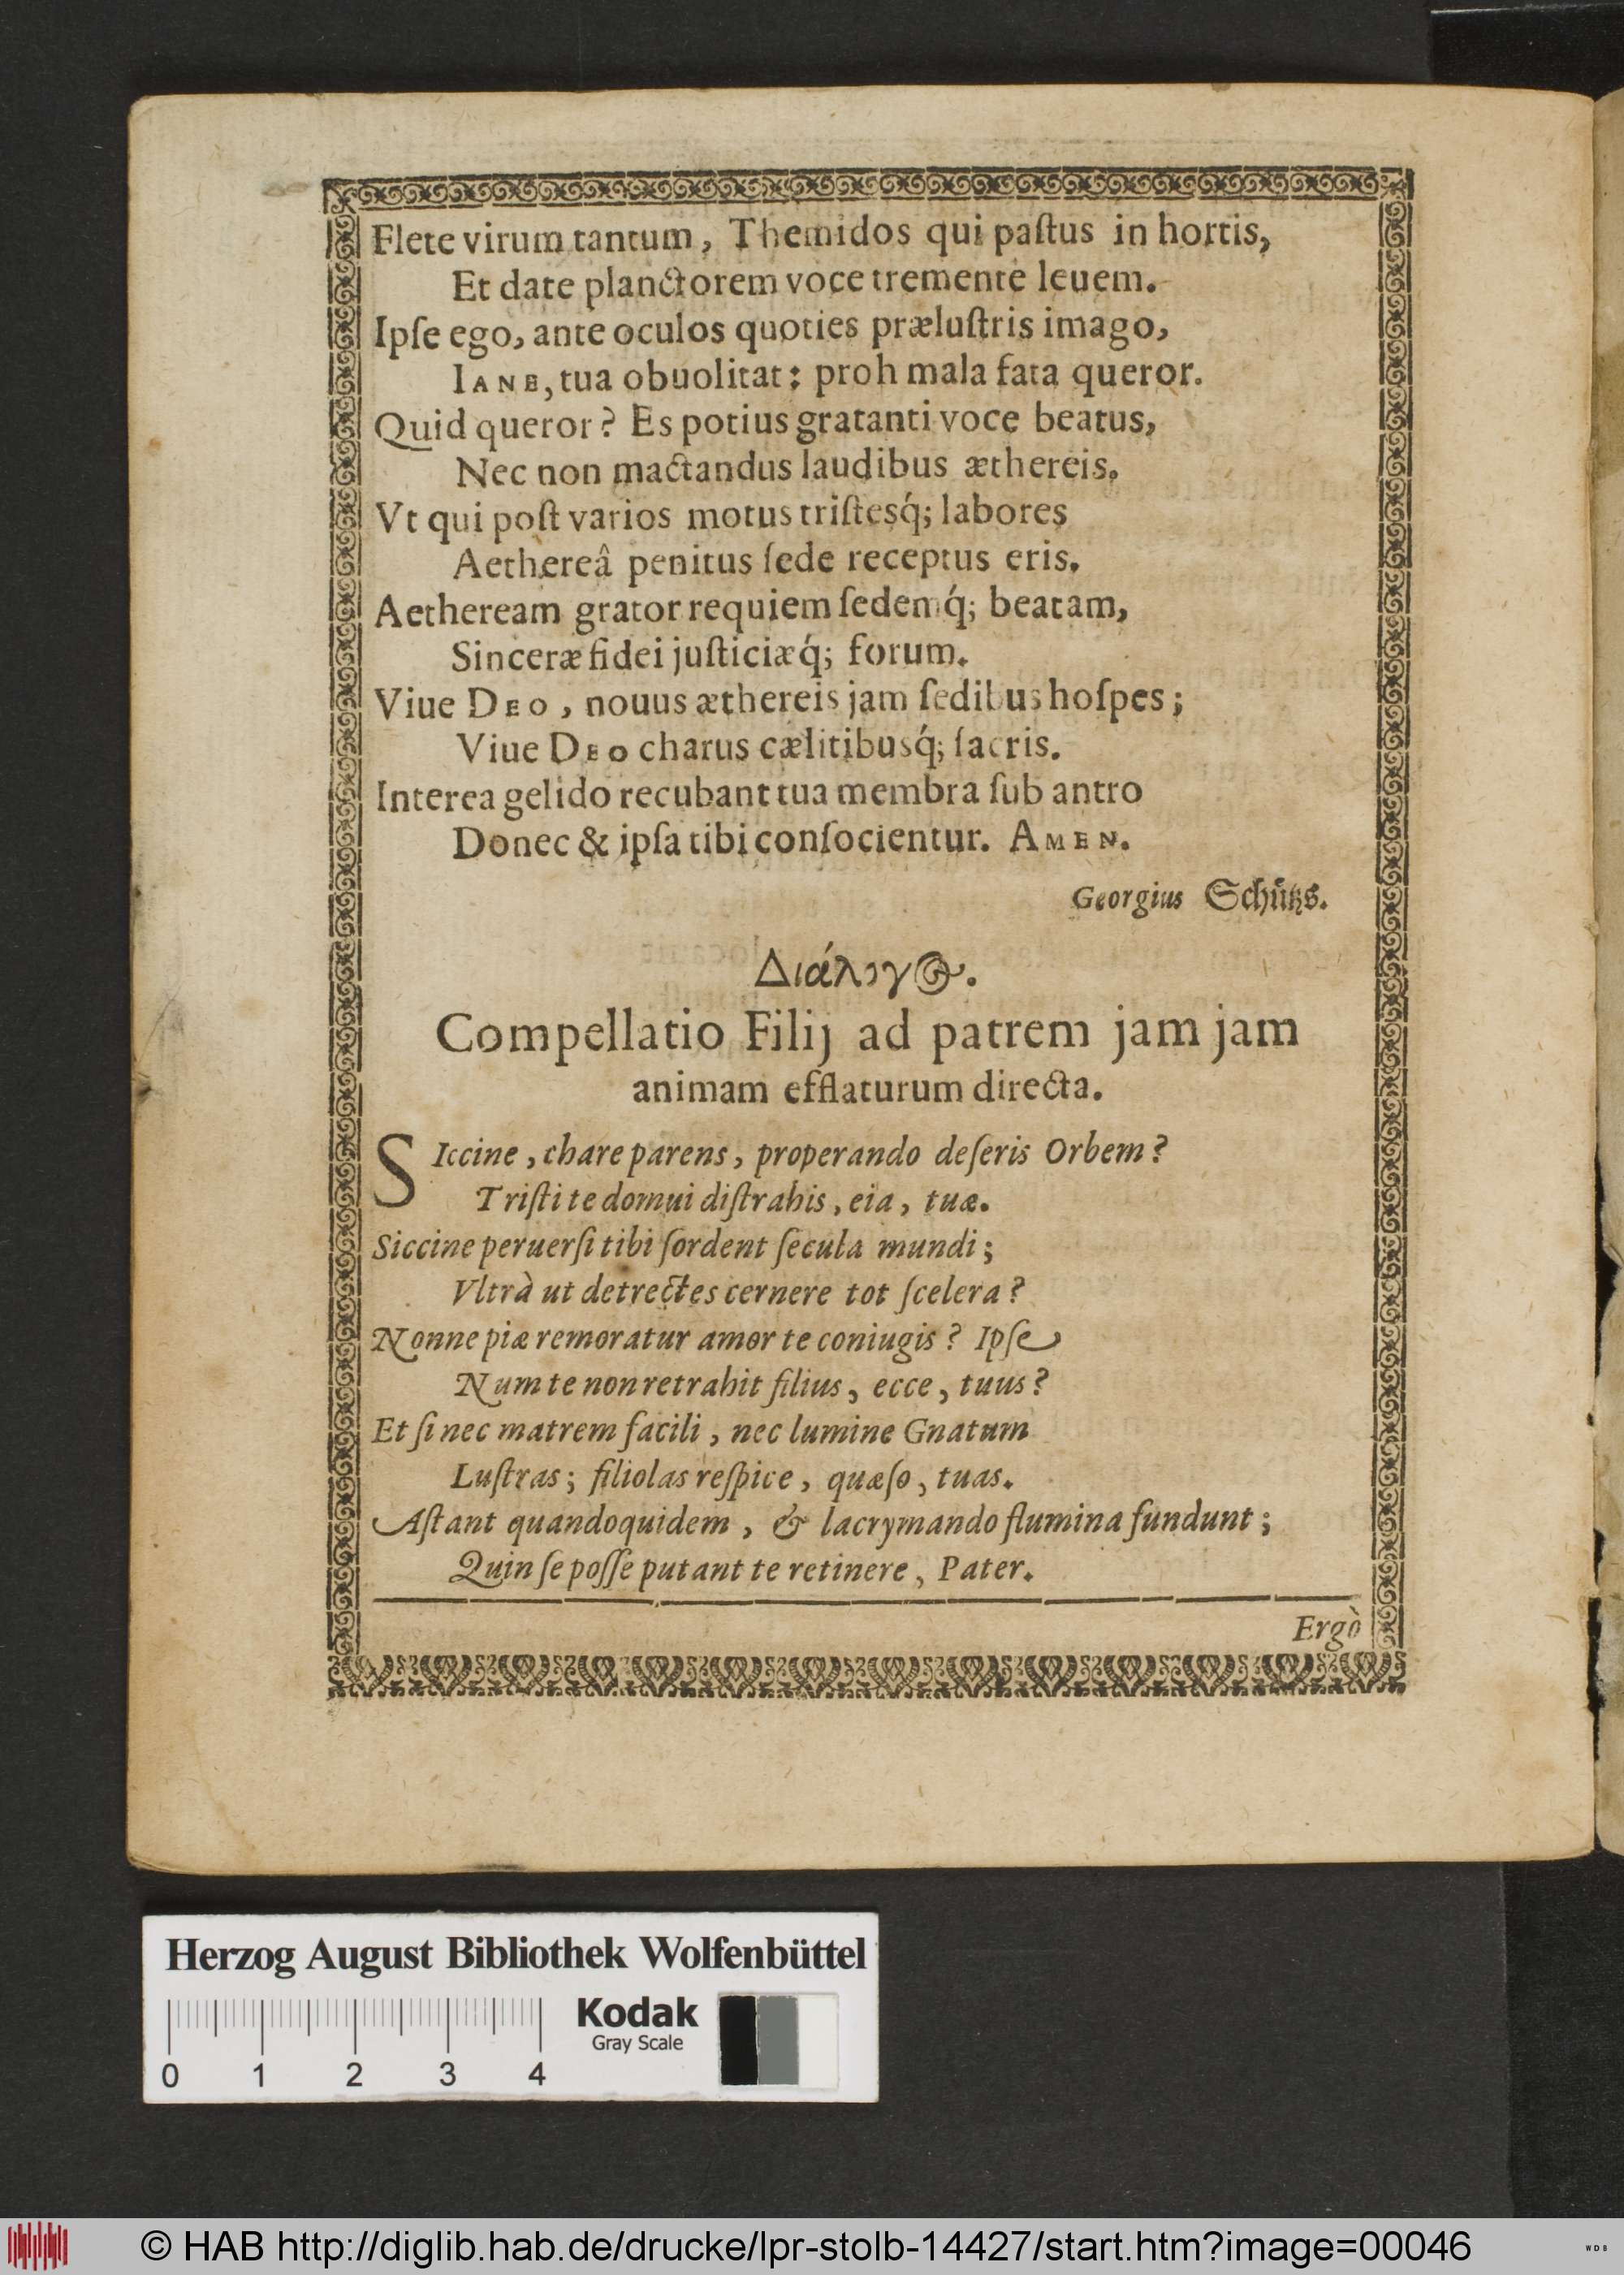 Flete virum tantum, Themidos qui paſtus in hortis,
Et date planctorem voce tremente leuem.
Ipſe ego, ante oculos quoties præluſtris imago,
IANE, tua obuolitat: proh mala fata queror.
Quid queror? Es potius gratanti voce beatus,
Nec non mactandus laudibus æthereis.
Vt qui poſt varios motus triſtesq́; labores
Aethereâ penitus ſede receptus eris.
Aetheream grator requiem ſedemq́; beatam,
Sinceræ fidei juſticiæq́; forum.
Viue DEO, nouus æthereis jam ſedibus hoſpes;
Viue DEO charus cælitibusq́; ſacris.
Interea gelido recubant tua membra ſub antro
Donec & ipſa tibi conſocientur. AMEN.
Georgius Schuͤtzs.
Διάλογος.
Compellatio Filij ad patrem jam jam
animam efflaturum directa.
SIccine, chare parens, properando deſeris Orbem?
Triſti te domui diſtrahis, eia, tuæ.
Siccine peruerſi tibi ſordent ſecula mundi;
Vltrà ut detrectes cernere tot ſcelera?
Nonne piæ remoratur amor te coniugis? Ipſe
Num te non retrahit filius, ecce, tuus?
Et ſi nec matrem facili, nec lumine Gnatum
Luſtras; filiolas reſpice, quæſo, tuas.
Aſtant quandoquidem, & lacrymando flumina fundunt;
Quin ſe poſſe putant te retinere, Pater.
Ergò
Herzog August Bibliothek Wolfenbüttel
Kodak
Gray Scale
0 1 2 3 4
© HAB http://diglib.hab.de/drucke/lpr-stolb-14427/start.htm?image=00046
WDB